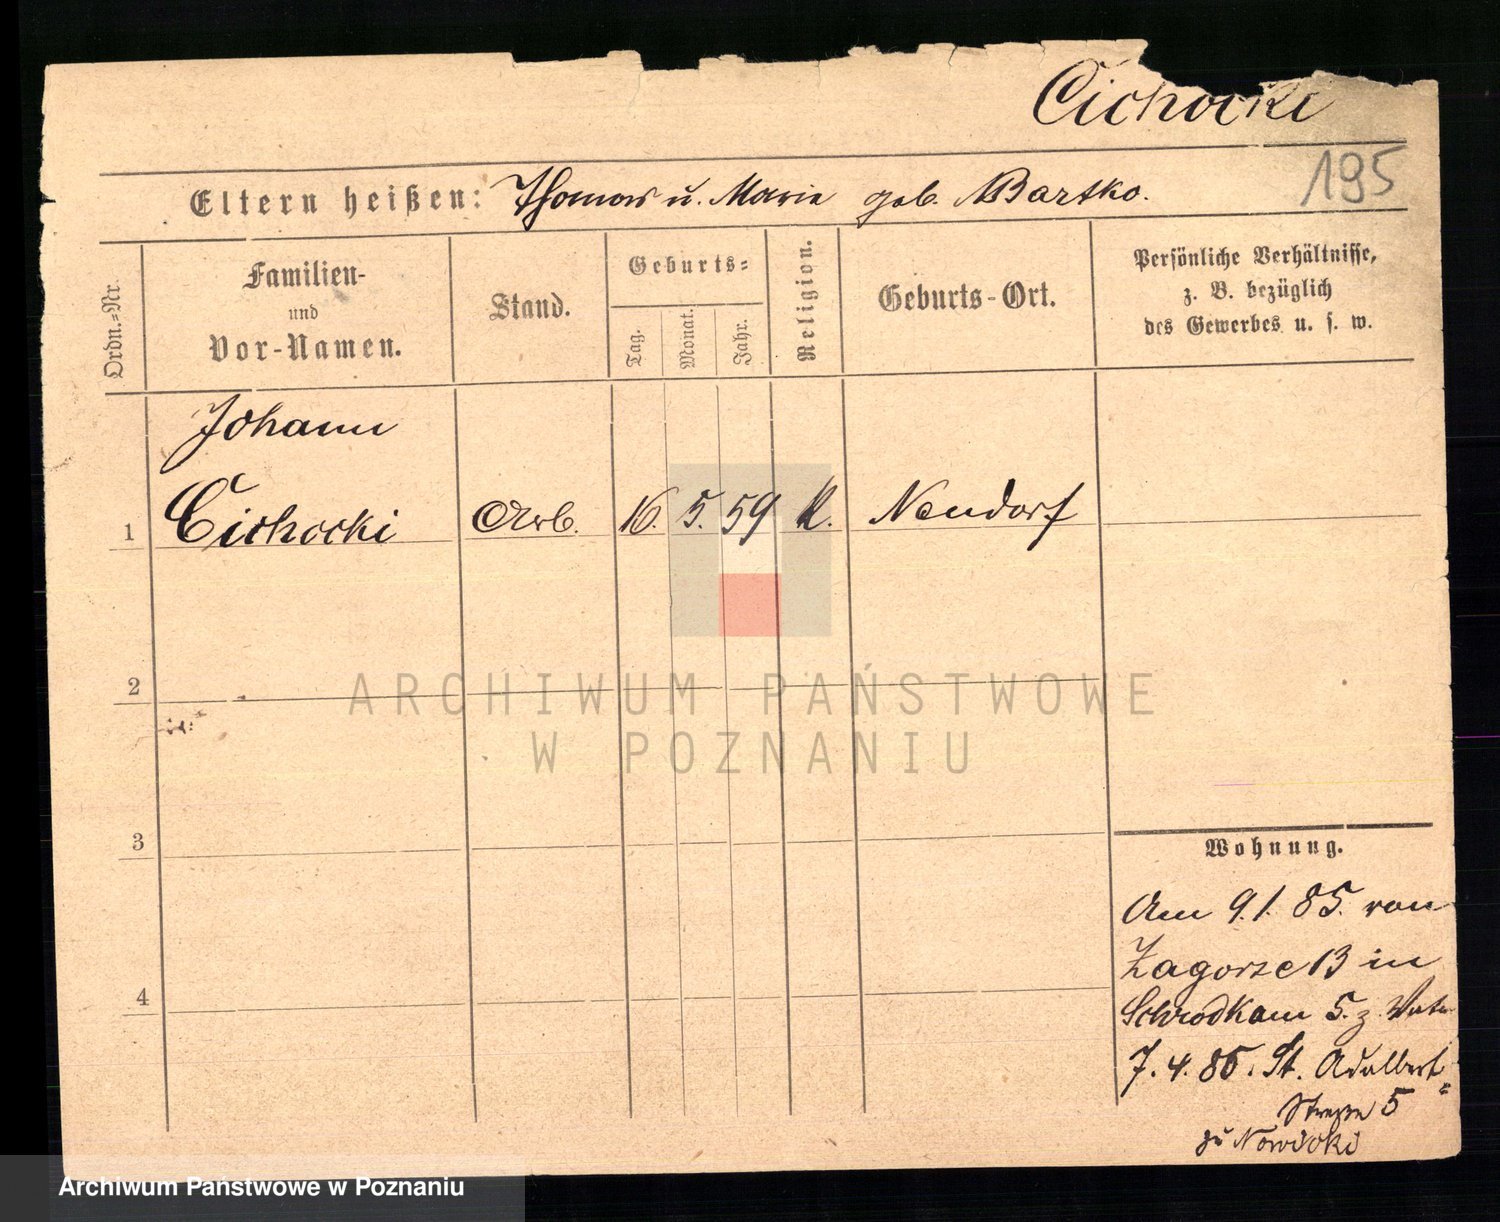 Cichocki
195
Eltern heißen: Thomas u. Marie geb. Bartko.
Ordn.=Nr.
Familien-
und
Vor-Namen.
Stand.
Geburts=
Tag.
Monat.
Jahr.
Religion.
Geburts-Ort.
Persönliche Verhältnisse,
z. B. bezüglich
des Gewerbes u. s. w.
Johann
1 Cichocki Arb. 16. 5. 59 K. Neudorf
2
3
4
Wohnung.
Am 9.1.85. von
Zagorze 13 in
Schrodkam 5. z. Vater
7.4.86. St. Adalbert=
Straße 5
zu Nowicki
ARCHIWUM PAŃSTWOWE
W POZNANIU
Archiwum Państwowe w Poznaniu